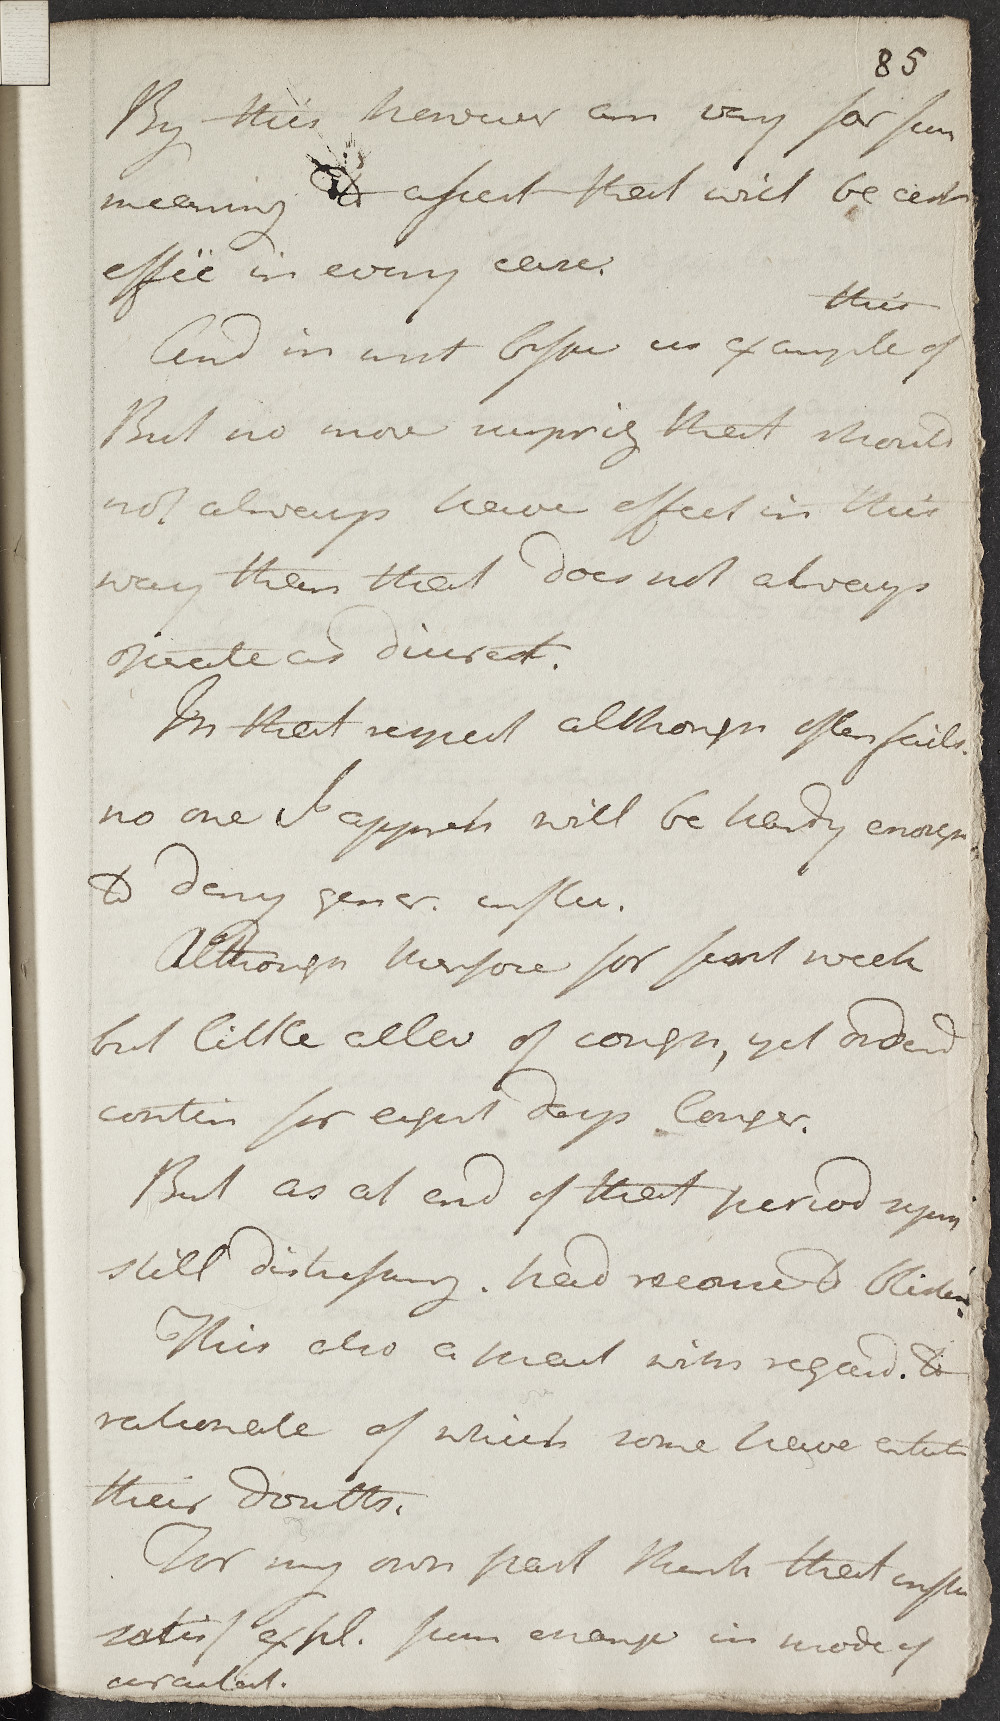 85
By this however am very far from
meaning to assert that will be certn
effic in every case.
this
And in inst befor us example of
But no more surprisg that should
not always have effect in this
way than that does not always
operate as diuret.
In that respect although often fails.
no one I appreh will be hardy enough
to deny gener. influ.
Although therfore for first week
but little allev of cough, yet orderd
contin for eight days longer.
But as at end of that period
still distressing. had recourse to blister.
This also a pract with regard. to
rationale of which some have
their doubts.
For my own part think that
satisf expl. from change in mode of
circulat.